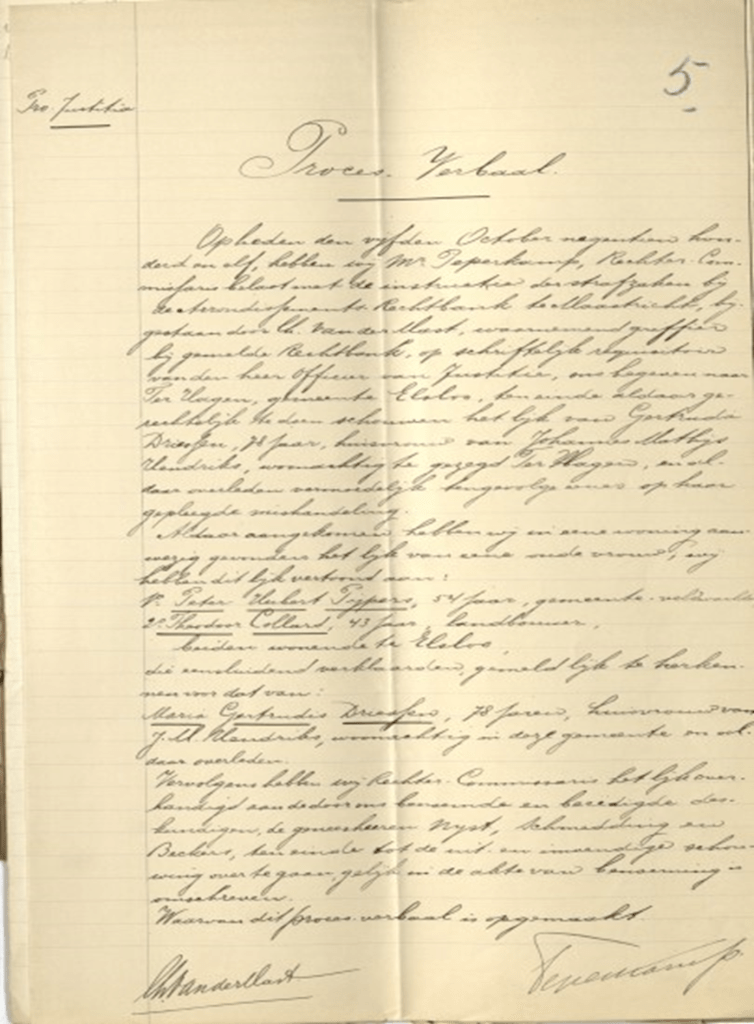 5
Pro Justitia
Proces-Verbaal.
Opheden den vyfden October negentien hon-
derd en elf, hebben wij Mr. Peperkamp, Rechter-Com-
missaris belast met de instructie der strafzaken bij
de Arrondissements Rechtbank te Maastricht, bij-
gestaan door Ch. van der Mast, waarnemend griffier
bij gemelde Rechtbank, op schriftelijk requisitoir
van den heer Officier van Justitie, ons begeven naar
Ter Hagen, gemeente Elsloo, ten einde aldaar ge-
rechtelijk te doen schouwen het lijk van Gertruda
Driessen, 78 jaar, huisvrouw van Johannes Mathijs
Hendriks, woonachtig te gezegd Ter Hagen, en al-
daar overleden vermoedelijk tengevolge eener op haar
gepleegde mishandeling.
Aldaar aangekomen hebben wij in eene woning aan-
wezig gevonden het lijk van eene oude vrouw, wij
hebben dit lijk vertoond aan:
1o. Peter Hubert Pijpers, 54 jaar, gemeente-veldwachter
2o. Theodoor Collard, 43 jaar, landbouwer,
beiden wonende te Elsloo,
die eensluidend verklaarden, gemeld lijk te herken-
nen voor dat van:
Maria Gertrudis Driessen, 78 jaren, huisvrouw van
J. M. Hendriks, woonachtig in deze gemeente en al-
daar overleden.
Vervolgens hebben wij Rechter-Commissaris het lijk over-
handigd aan de door ons benoemde en beeedigde des-
kundigen, de geneesheeren Nyst, Schmedding en
Beckers, ten einde tot de uit- en inwendige schou-
wing over te gaan, gelijk in de akte van benoeming is
omschreven.
Waarvan dit proces-verbaal is opgemaakt.
Ch. van der Mast
Peperkamp